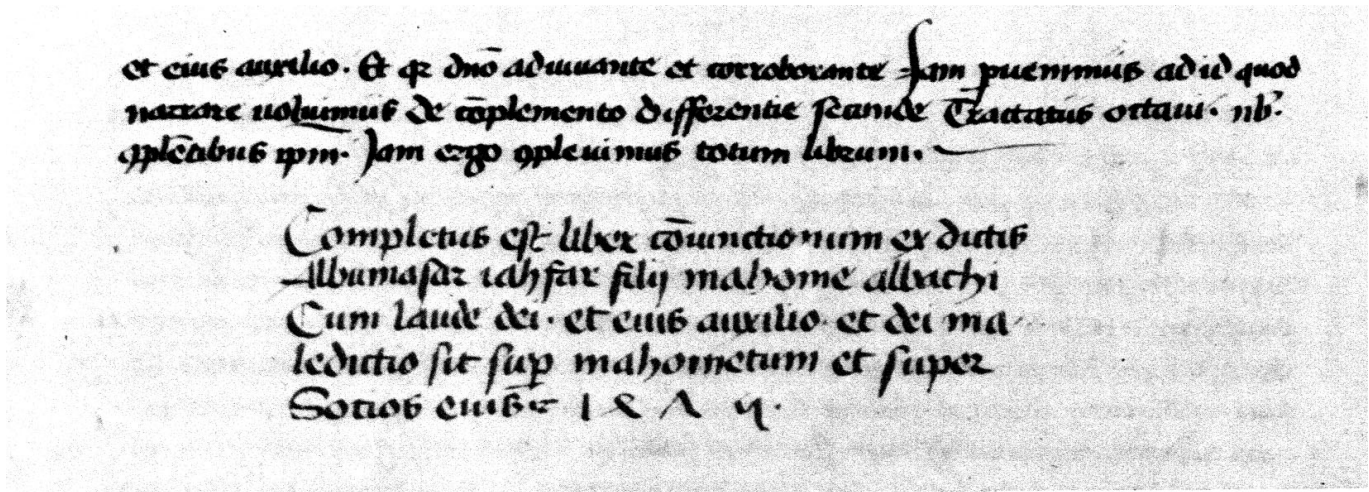 et eius auxilio. Et qꝛ dnō adiuuante et corroborante Jam ꝑuenimus ad id quod
narrare uoluimus de cōplemento differentie secunde Tractatus octaui. nb᷒.
ꝯplētibus ip̄m. Jam ergo ꝯpleuimus totum librum.
Completus est liber cōiunctionum ex dictis
Albumasar iahfar filij mahome albachi
Cum laude dei. et eius auxilio. et dei ma
ledictio sit suꝑ mahometum et super
Socios eius